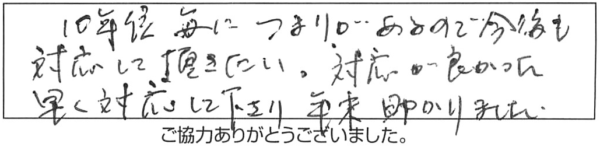 10年経 毎に つまりが あるので今後も
対応して頂きたい。対応が良かった
早く対応して下さり 年末 助かりました。
ご協力ありがとうございました。